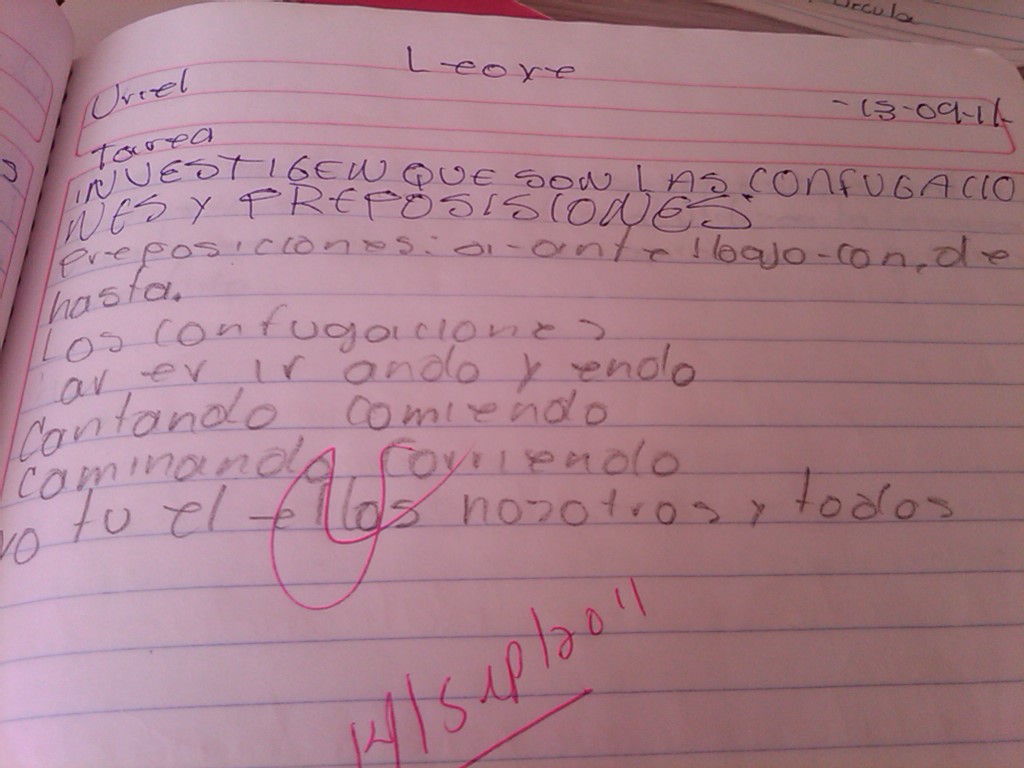 Leoye
Uriel
-13-09-11
Tarea
INVESTIGEN QUE SON LAS CONFUGACIO
NES Y PREPOSISIONES
Preposiciones: a-ante bajo-con, de
hasta.
Los confugaciones
ar er ir ando y endo
Cantando comiendo
caminando Corriendo
yo tu el ellos nosotros y todos
14/sep/2011